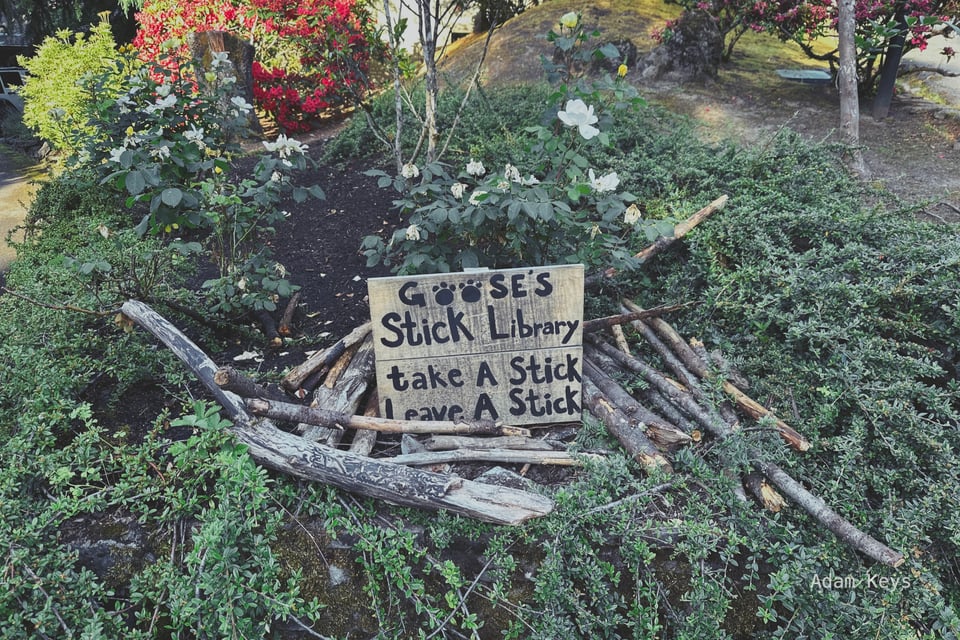 GOOSE'S
Stick Library
take A Stick
Leave A Stick
Adam Keys